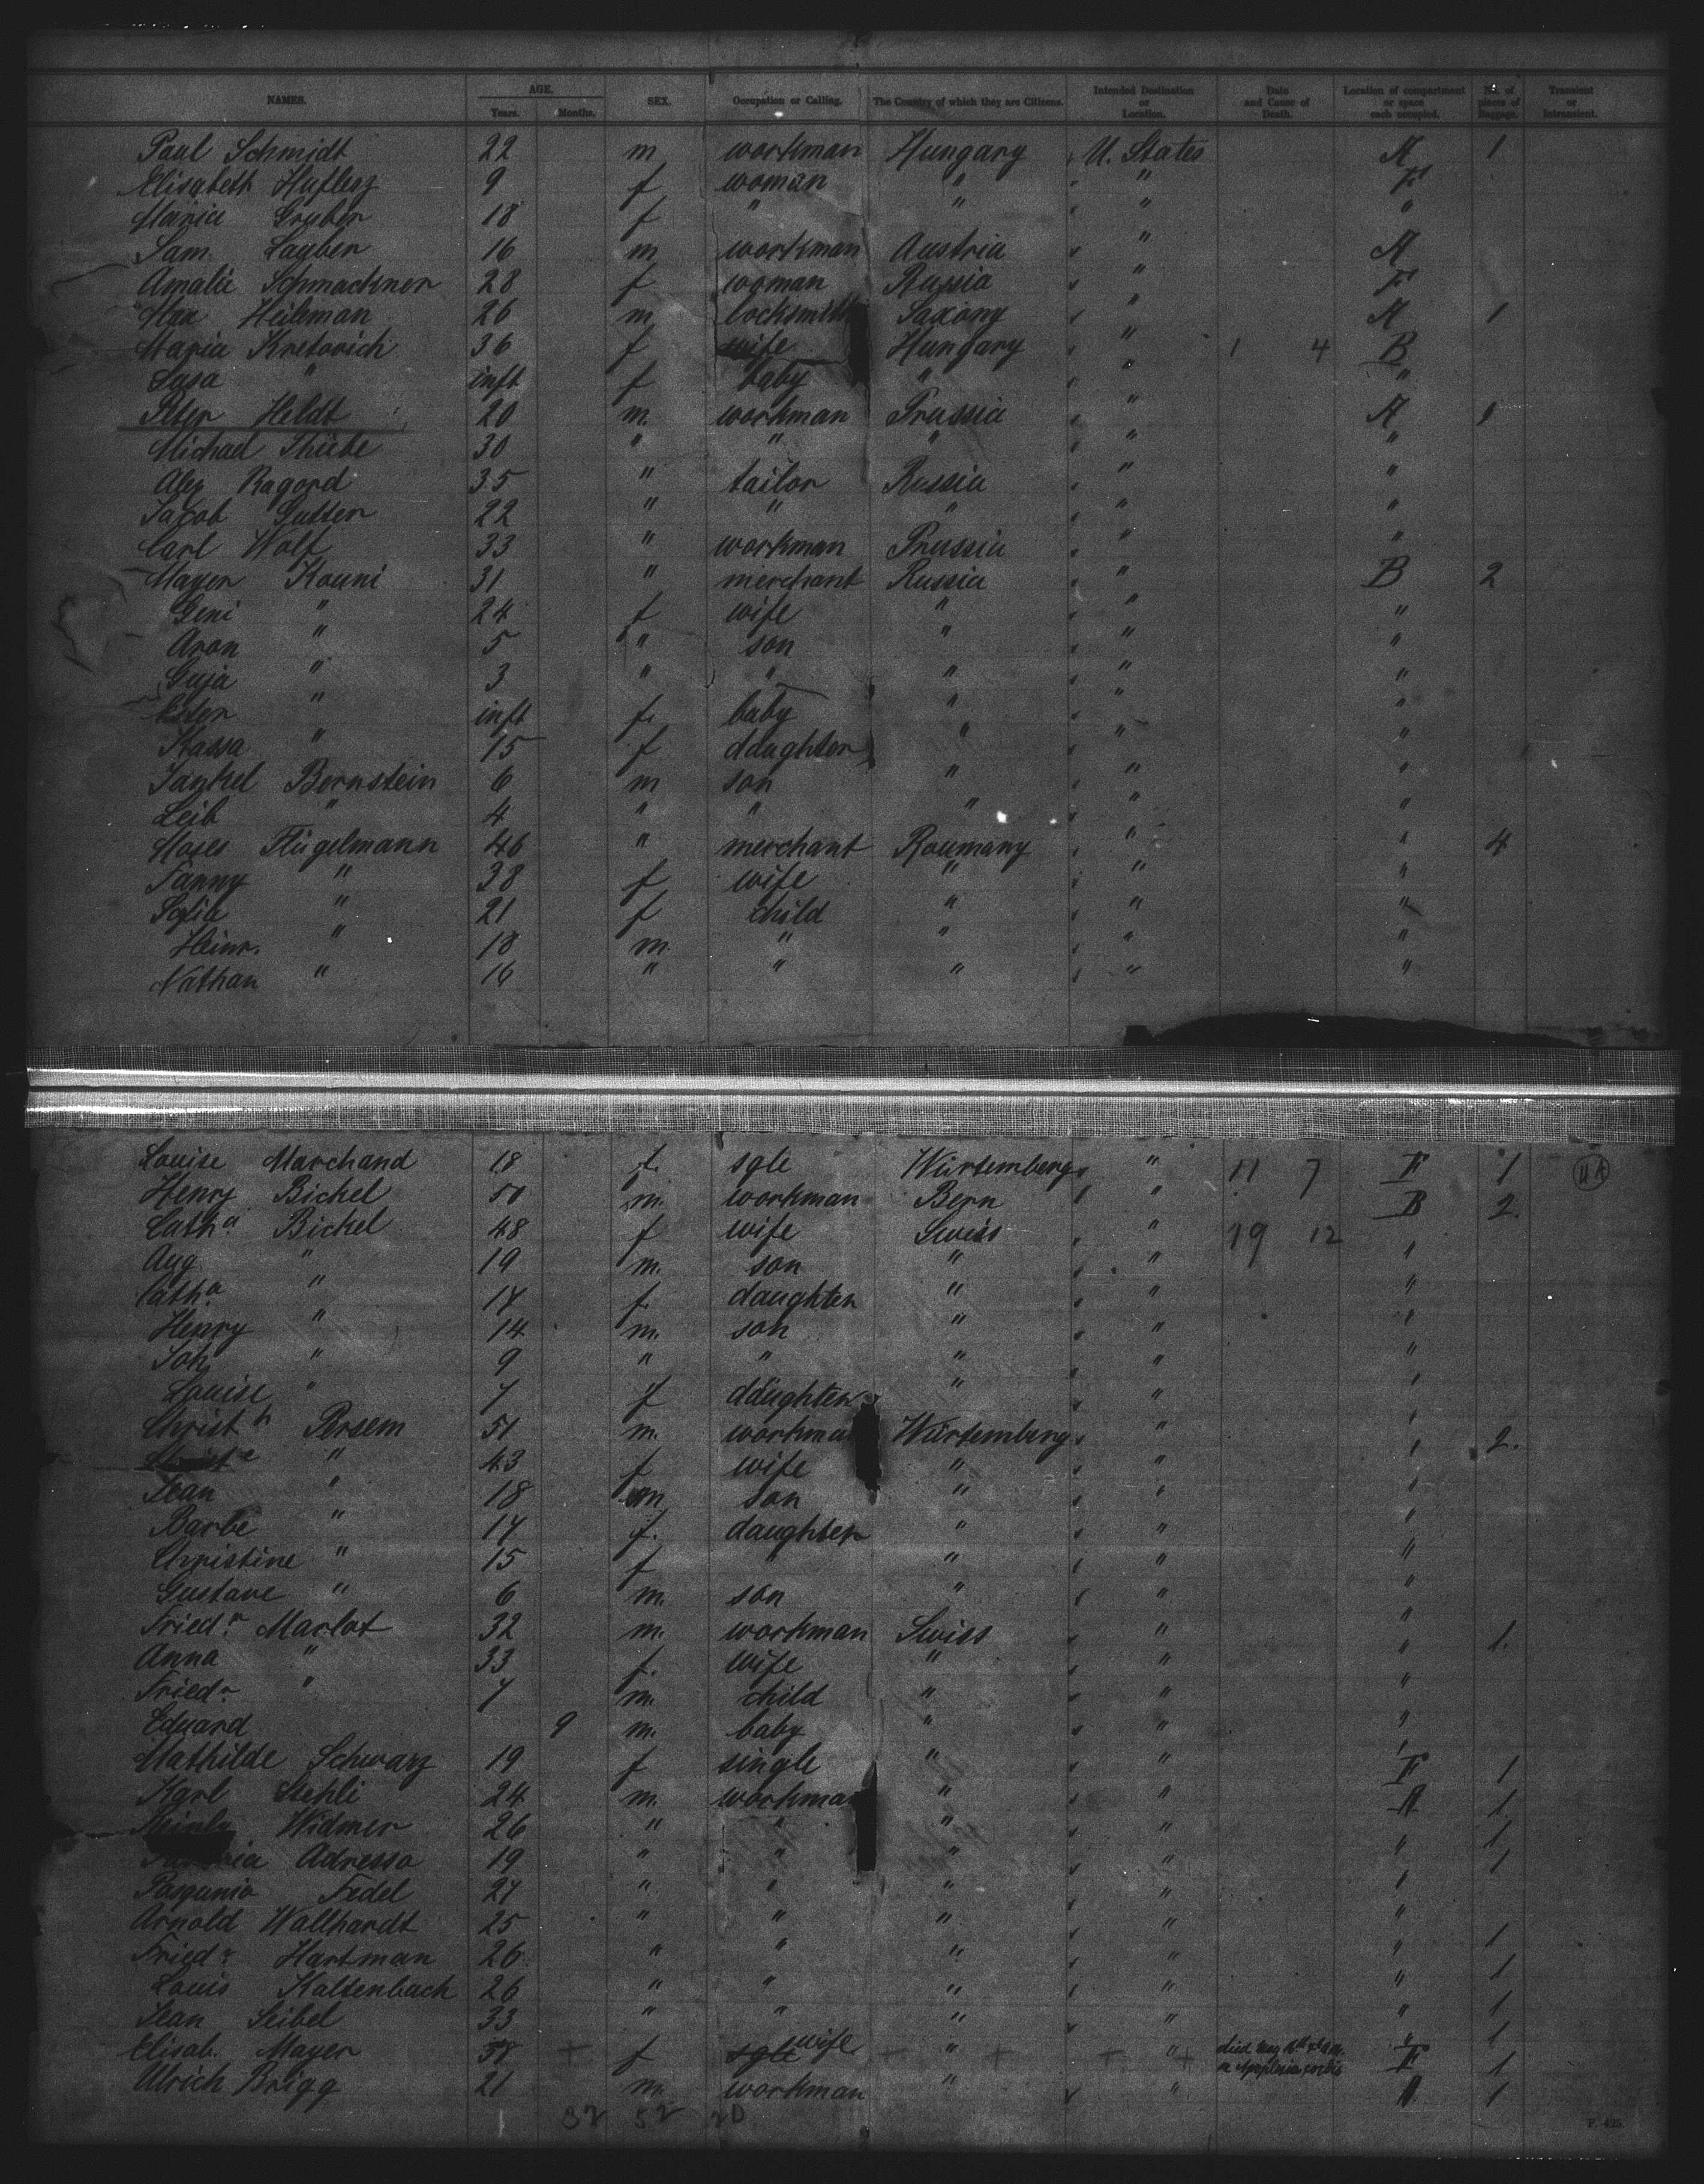 NAMES. AGE. Years. Months. SEX. Occupation or Calling. The Country of which they are Citizens. Intended Destination or Location. Date and Cause of Death. Location of compartment or space each occupied. No. of pieces of Baggage. Transient or Intransient.
Paul Schmidt 22 m workman Hungary U. States A 1
Elisabeth 9 f woman " " F
Maria Gruber 18 f " " " "
Sam. Lauber 16 m workman Austria " A
Amalie Schmackner 28 f woman Russia " F
Max Heileman 26 m locksmith Saxony " A 1
Maria Kretovich 36 f wife Hungary " 1 4 B
Susa " inft f baby " " "
Peter Heldt 20 m. workman Prussia " A 1
Michael Thiebe 30 " " " " "
Alex Ragord 35 " tailor Russia " "
Jacob Gutter 22 " " " " "
Carl Wolf 33 " workman Prussia " "
Mayer Kouni 31 " merchant Russia " B 2
Geni " 24 f wife " " "
Aron " 5 " son " " "
Guja " 3 " " " " "
Ester " inft f. baby " " "
Hassa " 15 f daughter " " "
Jankel Bernstein 6 m son " " "
Leib " 4 " " " " "
Moses Flügelmann 46 " merchant Roumany " " 4
Fanny " 38 f wife " " "
Sofia " 21 f child " " "
Heinr. " 18 m. " " " "
Nathan " 16 " " " " "
Louise Marchand 18 f. sgle Würtemberg " 11 7 F 1
Henry Bickel 50 m. workman Bern " B 2.
Catha Bickel 48 f wife Swiss " 19 12 "
Aug " 19 m. son " " "
Catha " 17 f. daughter " " "
Henry " 14 m. son " " "
Joh " 9 " " " " "
Louise " 7 f daughter " " "
Christ h Persem 51 m. workman Würtemberg " " 2.
" 43 f wife " " "
Jean " 18 m son " " "
Barbe " 17 f. daughter " " "
Christine " 15 f " " " "
Gustave " 6 m. son " " "
Friedr. Marlot 32 m. workman Swiss " " 1.
Anna " 33 f. wife " " "
Friedr " 7 m. child " " "
Eduard 9 m. baby " " "
Mathilde Schwarz 19 f single " " F 1
Karl Stehli 24 m. workman " " A 1
Widmer 26 " " " " " 1
Adresso 19 " " " " " 1
Pasqunio Fedel 27 " " " " "
Arnold Wallhardt 25 " " " " " 1
Friedr Hartman 26 " " " " " 1
Louis Kaltenbach 26 " " " " " 1
Jean Seibel 33 " " " " " 1
Elisab. Mayer 37 + f sgle wife + " + + " + died F 1
Ulrich Brigg 21 m. workman " " A 1
32 52 20